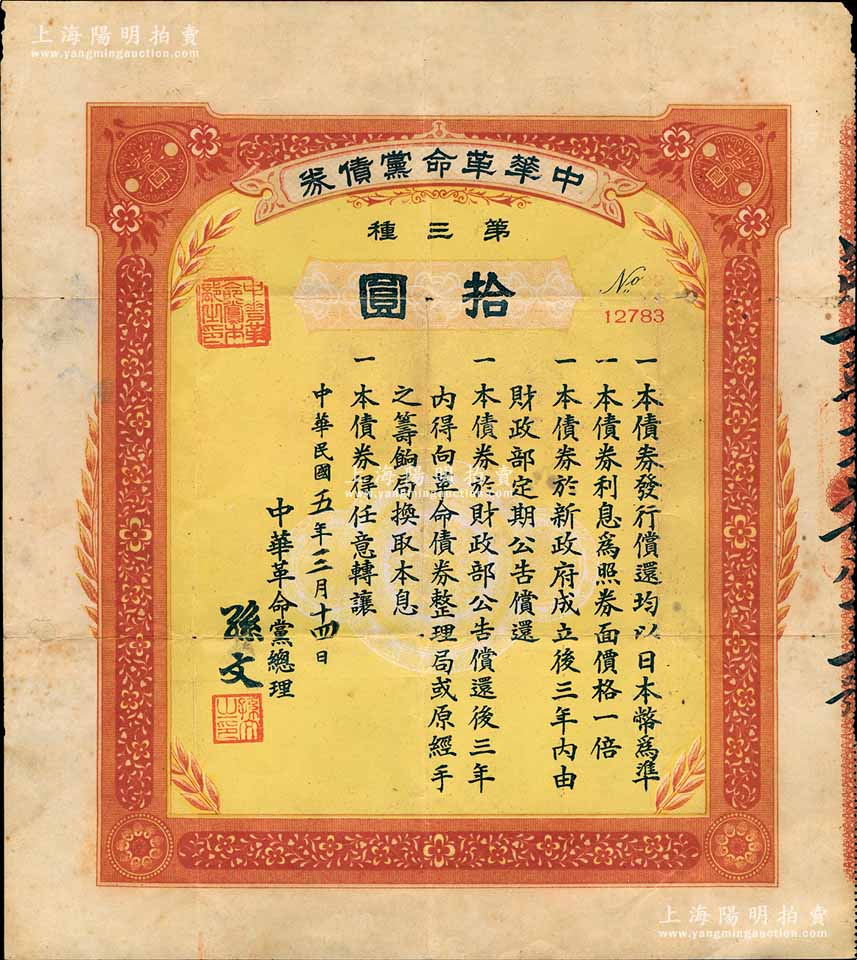 上海陽明拍賣
www.yangmingauction.com
中華革命黨債券
第三種
拾圓
No
12783
一本債券發行償還均以日本幣爲準
一本債券利息爲照券面價格一倍
一本債券於新政府成立後三年內由
財政部定期公告償還
一本債券於財政部公告償還後三年
內得向革命債券整理局或原經手
之籌餉局換取本息
一本債券得任意轉讓
中華民國五年三月十四日
中華革命黨總理
孫文
孫文之印
中華革命黨本部之印
上海陽明拍賣
www.yangmingauction.com
上海陽明拍賣
www.yangmingauction.com